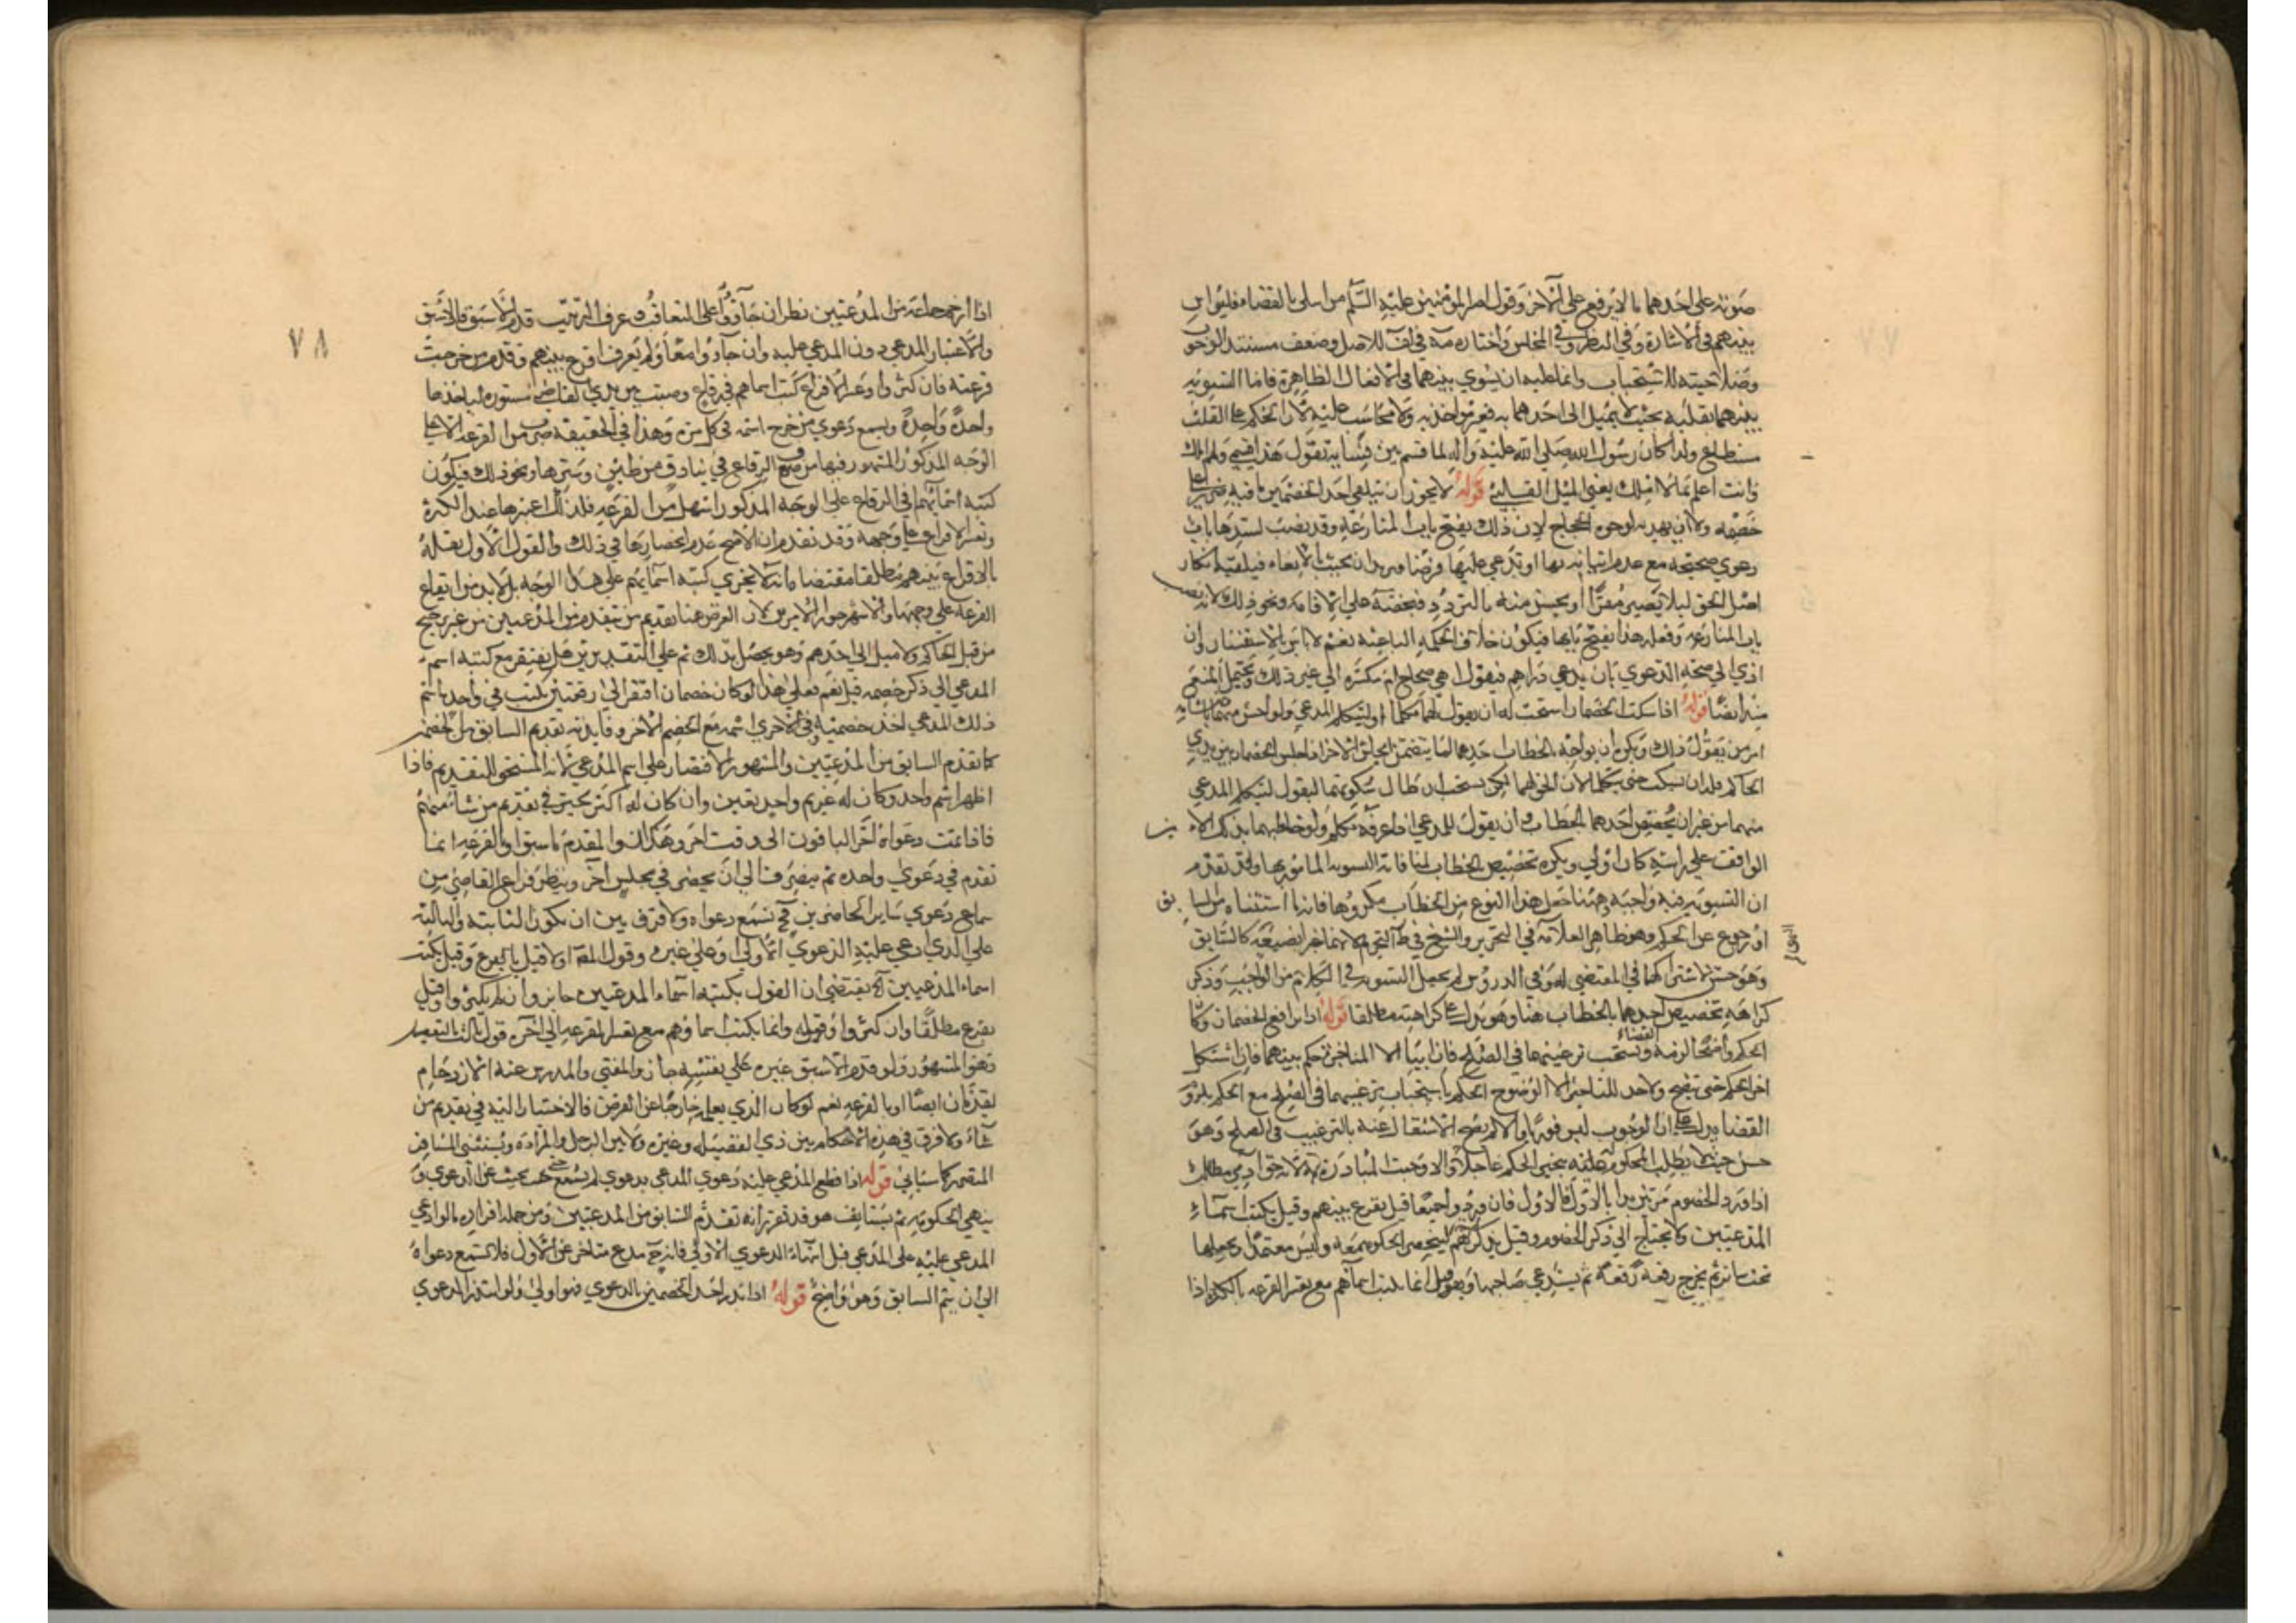 صوته على احدهما ما لا يرفع على الآخر وقول امير المؤمنين عليه السلم من ابتلى بالقضاء فليواس
بينهم في الاشارة وفي النظر وفي المجلس واختاره مة في لف للاصل وضعف مستند الوجوب
وصلاحيته للاستحباب وانما عليه ان يسوي بينهما في الافعال الظاهرة فاما التسوية
بينهما بقلبه بحيث لا يميل الى احدهما به فغير مواخذ به ولا محاسب عليه لان الحكم على القلب
مستطاع ولذا كان رسول الله صلى الله عليه واله لما قسم بين نسايه تقول هذا قسمي ولما املك
وانت اعلم بما لا املك يعني الميل القلبي قوله لا يجوز ان يلقي احد الخصمين ما فيه ضرر على
خصمه ولا ان يهديه لوجوه الحجاج لان ذلك يفتح باب المنازعة وقد نصب لسدها بان
دعوى صحيحة مع عدم اتيانه بها او تدعي عليها قرضا يريد ان يجيب بالايفاء فيلقيه انكار
اصل الحق ليلا يصير مقرا او يحس منه بالتردد فيحضه على الاقامة ونحو ذلك لانه نصب
باب المنازعة وفعله هذا يفتح بابها فيكون خلاف الحكمة الباعثة نعم لا باس بالاستفسار وان
ادى الى صحة الدعوى بان يدعي دراهم فيقول اهي صحاح ام مكسرة الى غير ذلك ويحتمل المنع
منه ايضا قوله اذا سكت الخصمان استحب له ان يقول لهما تكلما او ليتكلم المدعي ولو احس منهما باحتشامه
امر من يقول ذلك ويكره ان يواجه بالخطاب احدهما لما يتضمن ايحاش الآخر اذا جلس الخصمان بين يدي
الحاكم فله ان يسكت حتى يتكلما لان الحق لهما لكن يستحب ان طال سكوتهما ليقول ليتكلم المدعي
منهما من غير ان يختص احدهما بالخطاب وان يقول للمدعي اذا عرفه تكلم ولو خاطبهما بذلك الامين
الواقف على راسه كان اولى ويكره تخصيص الخطاب لمنافاته التسوية المامور بها وقد تقدم
ان التسوية فيه واجبة وهنا جعل هذا النوع من الخطاب مكروها فانها استثناه من السابق
او رجوع عن الحكم وهو ظاهر العلامة في التحرير والشيخ في ط التحريم لانهما عبرا بصيغة كالسابق
وهو حسن لاشتراكهما في المقتضي له وفي الدروس لم يجعل التسوية في الكلام من الواجب وذكر
كراهة تخصيص احدهما بالخطاب هنا وهو يدل على كراهته مطلقا قوله اذا ترافع الخصمان وكان
الحكم واضحا لزمه القضاء ويستحب ترغيبهما في الصلح فان ابيا الا المناجزة حكم بينهما فان اشكل
اخر الحكم حتى يتضح ولا حد للتاخير الا الوضوح الحكم باستحباب ترغيبهما في الصلح مع الحكم بلزوم
القضا يدل على ان الوجوب ليس فوريا والا لم يصح الاشتغال عنه بالترغيب في الصلح وهو
حسن حيث لا يطلب المحكوم له تنجيز الحكم عاجلا والا وجبت المبادرة لانه حق ادمي مطالب
اذا ورد الخصوم مترتبين بدا بالاول فالاول فان وردوا جميعا قيل يقرع بينهم وقيل يكتب اسماء
المدعيين ولا يحتاج الى ذكر الخصوم وقيل يذكرهم ليتحضر الحكومة معه وليس معتمدا ويجعلها
تحت ساتر ثم يخرج رقعة رقعة ثم يستدعي صاحبها وقيل انما تكتب اسماؤهم مع تعسر القرعة بالكثرة اذا
٧٨
اذا ازدحم جماعة من المدعيين نظر ان جاؤوا على التعاقب وعرف الترتيب قدم الاسبق فالاسبق
والاعتبار المدعي دون المدعى عليه وان جاؤا معا ولم يعرف اقرع بينهم وقدم من خرجت
قرعته فان كثروا وعسر الاقراع كتب اسماهم في رقاع وصبت بين يدي القاضي مستورة لياخذها
واحدة واحدة ويسمع دعوى من خرج اسمه في كل مرة وهذا في الحقيقة ضرب من القرعة الا على
الوجه المذكور المشهور فيها من وضع الرقاع في بنادق من طين وسترها ونحو ذلك فيكون
كتبة اسمائهم في الرقاع على الوجه المذكور اسهل من القرعة فلذلك اعتبرها عند الكثرة
وتعسر الاقراع على وجهه وقد تقدم ان الاصح عدم انحصارها في ذلك والقول الاول بقوله
بالاقراع بينهم مطلقا مقتضا وانه لا يجزي كتبة اسمائهم على هذا الوجه بل لا بد من ايقاع
القرعة على وجهها والاشهر جواز الامرين لان الغرض هنا تقديم من يتقدم من المدعيين من غير ترجيح
من قبل الحاكم ولا ميل الى احدهم وهو يحصل بذلك ثم على التقديرين هل يفتقر مع كتبة اسم
المدعي الى ذكر خصمه قيل نعم فعلى هذا لو كان خصمان افتقر الى رقعتين يكتب في واحدة اسم
ذلك المدعي احد خصميه وفي الاخرى اسمه مع الخصم الاخر وفايدته تقديم السابق من الخصم
كما تقدم السابق من المدعيين والمشهور الاقتصار على اسم المدعي لانه المستحق للتقديم فاذا
اظهر اسم واحد وكان له غريم واحد تعين وان كان له اكثر تخير في تقديم من شاء منهم
فاذا تمت دعواه اخر الباقون الى وقت اخر وهكذا والمقدم بالسبق او القرعة انما
تقدم في دعوى واحدة ثم ينصرف الى ان يحضر في مجلس آخر وينتظر فراغ القاضي من
سماع دعوى ساير الحاضرين فح تسمع دعواه ولا فرق بين ان تكون الثانية والثالثة
على الذي ادعي عليه الدعوى الاولى او على غيره وقول المصنف اولا قيل يقرع وقيل يكتب
اسماء المدعيين آه يقتضي ان القول بكتبة اسماء المدعيين جايز وان لم يكثروا وقيل
يقرع مطلقا وان كثروا وقوله وانما يكتب اسماؤهم مع تعسر القرعة الى اخره قول ثالث بالتفصيل
وهو المشهور ولو قدم الاسبق غيره على نفسه جاز والمفتي والمدرس عند الازدحام
يقدمان ايضا او بالقرعة نعم لو كان الذي يعلمه خارجا عن الفرض فالاختيار اليه في تقديم من
شاء ولا فرق في هذه الاحكام بين ذي الفضيلة وغيره ولا بين الرجل والمراة ويستثنى المسافر
المتضرر كما سياتي قوله اذا قطع المدعى عليه دعوى المدعي بدعوى لم تسمع حتى يجيب عن الدعوى و
ينهي الحكومة ثم يستانف هو قد تقرر انه تقدم السابق من المدعيين ومن جملة افراده ما لو ادعى
المدعى عليه على المدعي قبل انتهاء الدعوى الاولى فانه ح مدع متاخر عن الاول فلا تسمع دعواه
الى ان يتم السابق وهو واضح قوله اذا بدر احد الخصمين بالدعوى فهو اولى ولو ابتدرا الدعوى